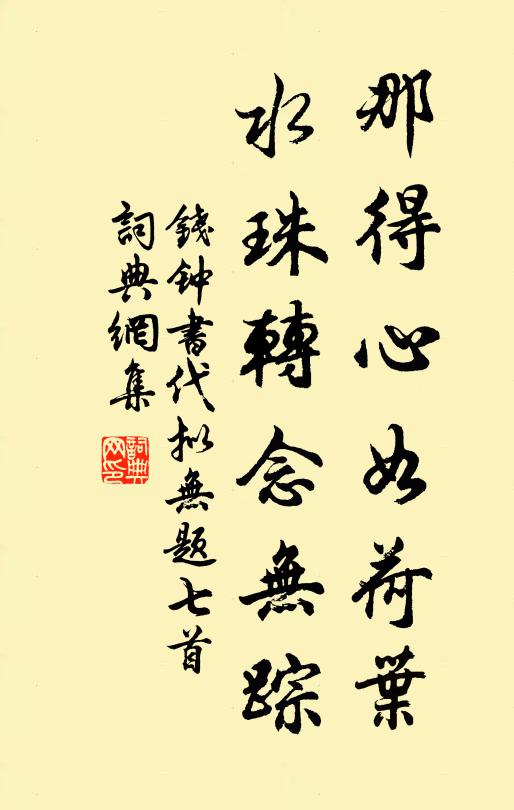 那得心如荷葉
水珠轉念無踪
錢钟書代拟無題七首
詞典網集
詞典
网印